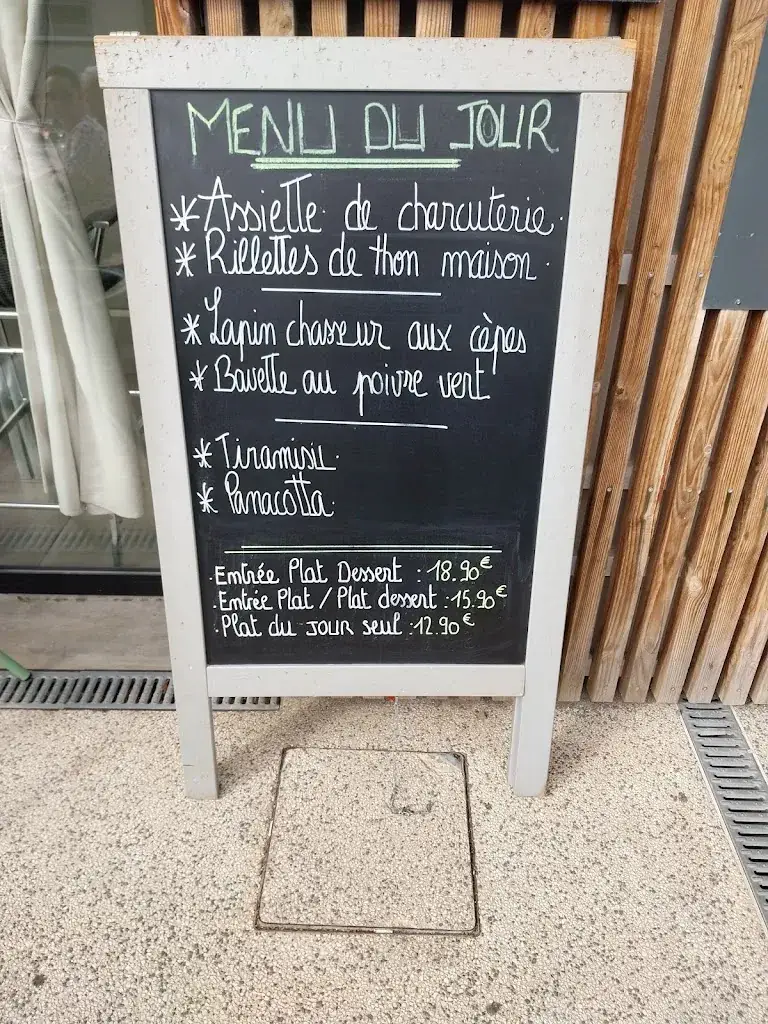 MENU DU JOUR
* Assiette de charcuterie.
* Rillettes de thon maison.
* Lapin chasseur aux cèpes
* Bavette au poivre vert
* Tiramisu.
* Panacotta.
. Entrée Plat Dessert : 18.90€
. Entrée Plat / Plat dessert : 15.90€
. Plat du jour seul : 12.90€